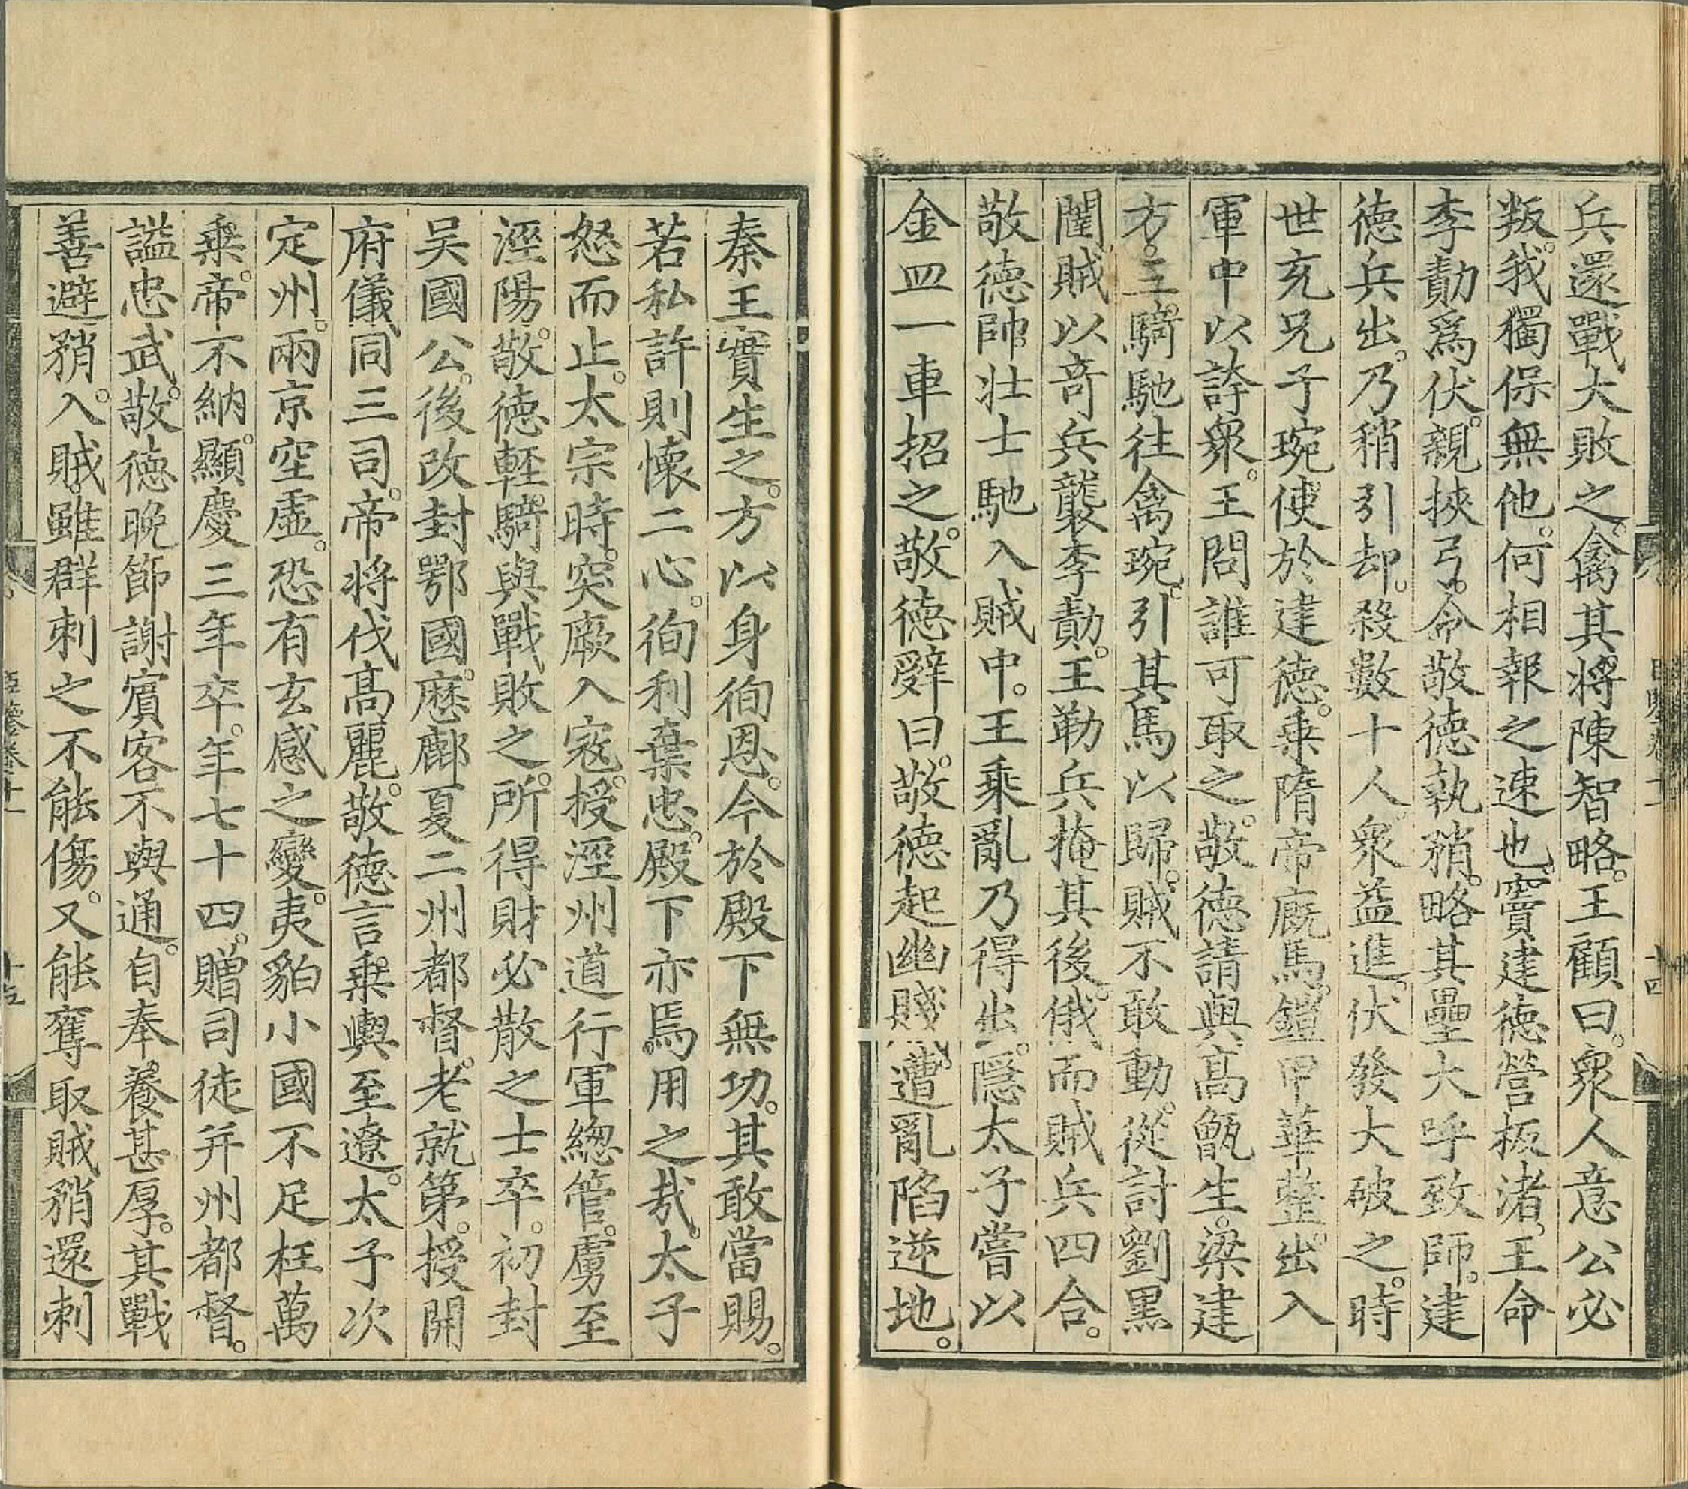 兵還戰大敗之。禽其将陳智略。王顧曰。衆人意公必
叛。我獨保無他。何相報之速也。竇建徳營板渚。王命
李勣爲伏。親挾弓。命敬徳執矟。略其壘大呼致師。建
徳兵出。乃稍引却。殺數十人。衆益進。伏發大破之。時
世充兄子琬使於建徳。乗隋帝廐馬。鎧甲華整。出入
軍中以誇衆。王問誰可取之。敬徳請與高甑生。梁建
方。三騎馳往禽琬。引其馬以歸。賊不敢動。從討劉黒
闥。賊以竒兵襲李勣。王勒兵掩其後。俄而賊兵四合。
敬徳帥壮士馳入賊中。王乘亂乃得出。隠太子嘗以
金皿一車招之。敬徳辤曰。敬徳起幽賤。遭亂陷逆地。
秦王實生之。方以身徇恩。今於殿下無功。其敢當賜。
若私許則懐二心。徇利棄忠。殿下亦焉用之㢤。太子
怒而止。太宗時。突厥入寇。授涇州道行軍緫管。虜至
涇陽。敬徳輕騎與戰敗之。所得財必散之士卒。初封
吴國公。後改封鄂國。歴鄜夏二州都督。老就第。授開
府儀同三司。帝将伐髙麗。敬徳言乗輿至遼。太子次
定州。兩京空虚。恐有玄感之變。夷貊小國不足枉萬
乗。帝不納。顯慶三年卒。年七十四。贈司徒并州都督。
謚忠武。敬徳晩節謝賓客不與通。自奉養甚厚。其戰
善避矟。入賊。雖群刺之不能傷。又能奪取賊矟還刺